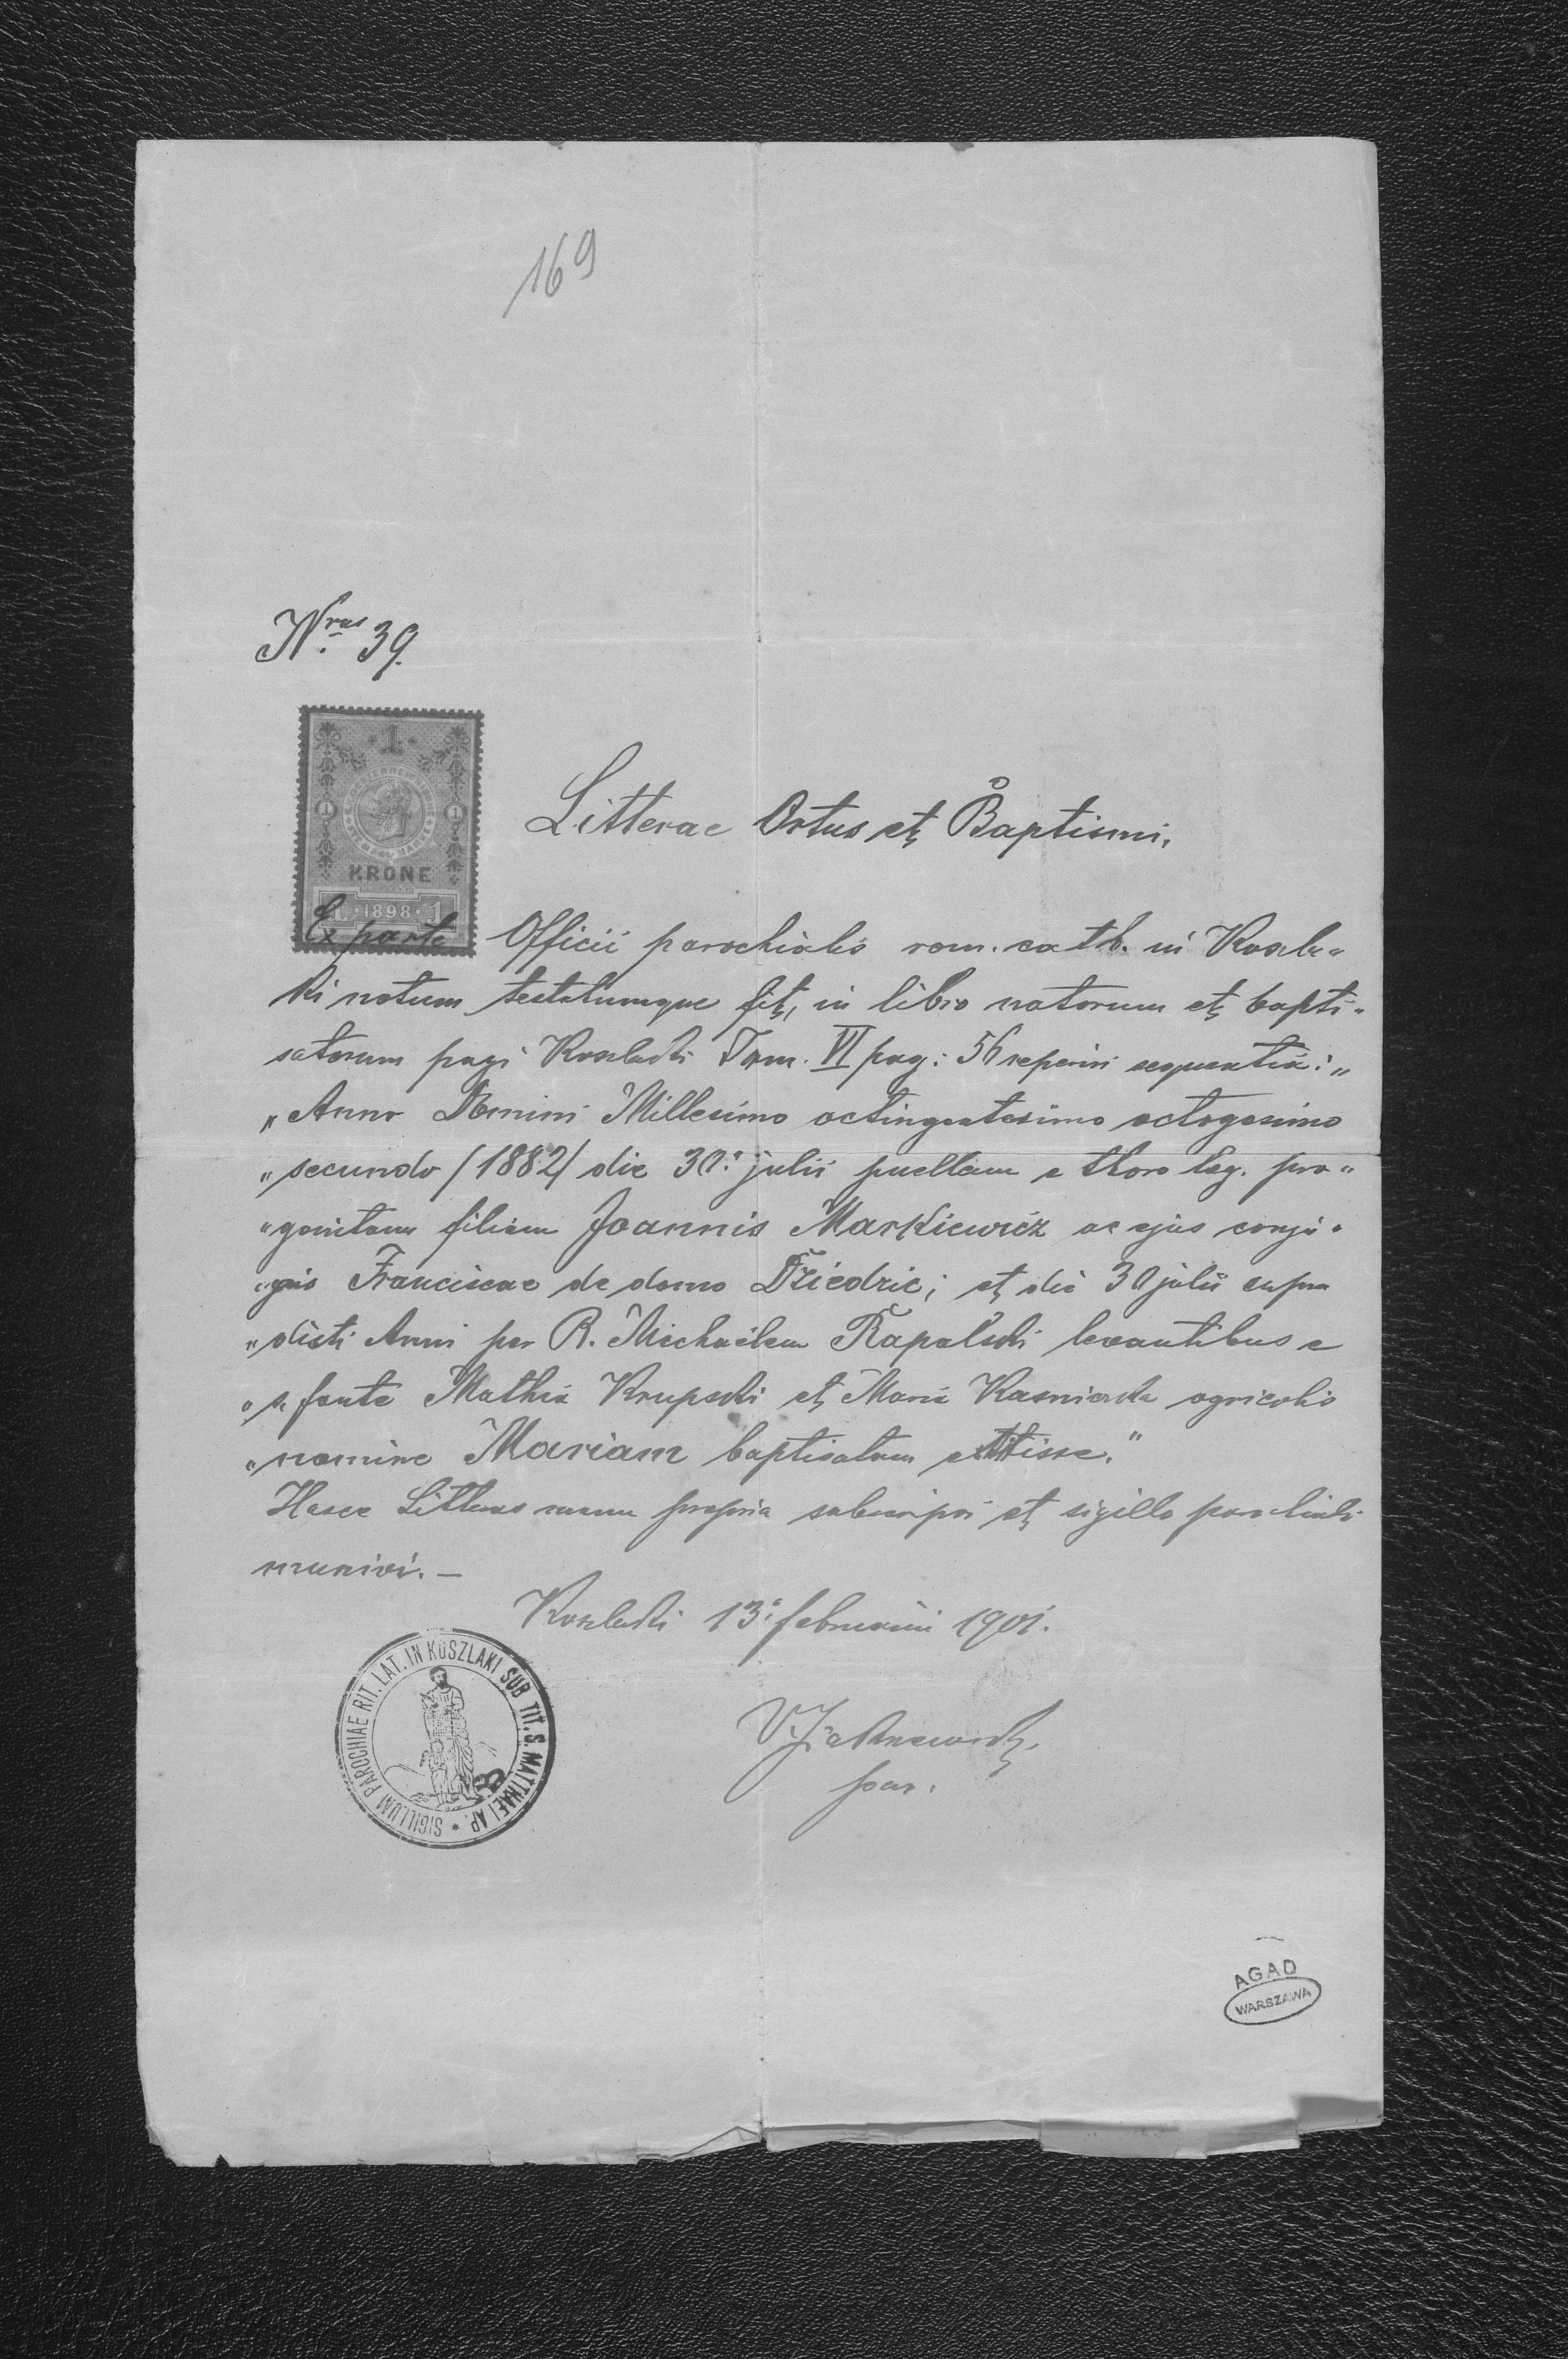 169
Nrus 39.
1
KRONE
1 · 1898 · 1
Litterae Ortus et Baptismi.
Ex parte Officii parochialis rom. cath. in Koszla-
ki notum testatumque fit, in libro natorum et bapti-
satorum pagi Koszlaki Tom. VI pag: 56 reperiri sequentia: "
"Anno Domini Millesimo octingentesimo octogesimo
"secundo /1882/ die 30. julii puellam e thoro leg. pro"
"genitam filiam Joannis Markiewicz ac ejus conju"
"gis Franciscae de domo Dziedzic; et die 30 julii supra
"dicti Anni per R. Michaëlem Rapalski levantibus e
"s. fonte Mathia Krupski et Maria agricolis
"nomine Mariam baptisatam extitisse."
Hasce Litteras manu propria subscripsi et sigillo parochiali
munivi. —
Koszlaki 13. februarii 1901.
par.
SIGILLUM PAROCHIAE RIT. LAT. IN KOSZLAKI SUB TIT. S. MATTHAEI AP. *
AGAD
WARSZAWA